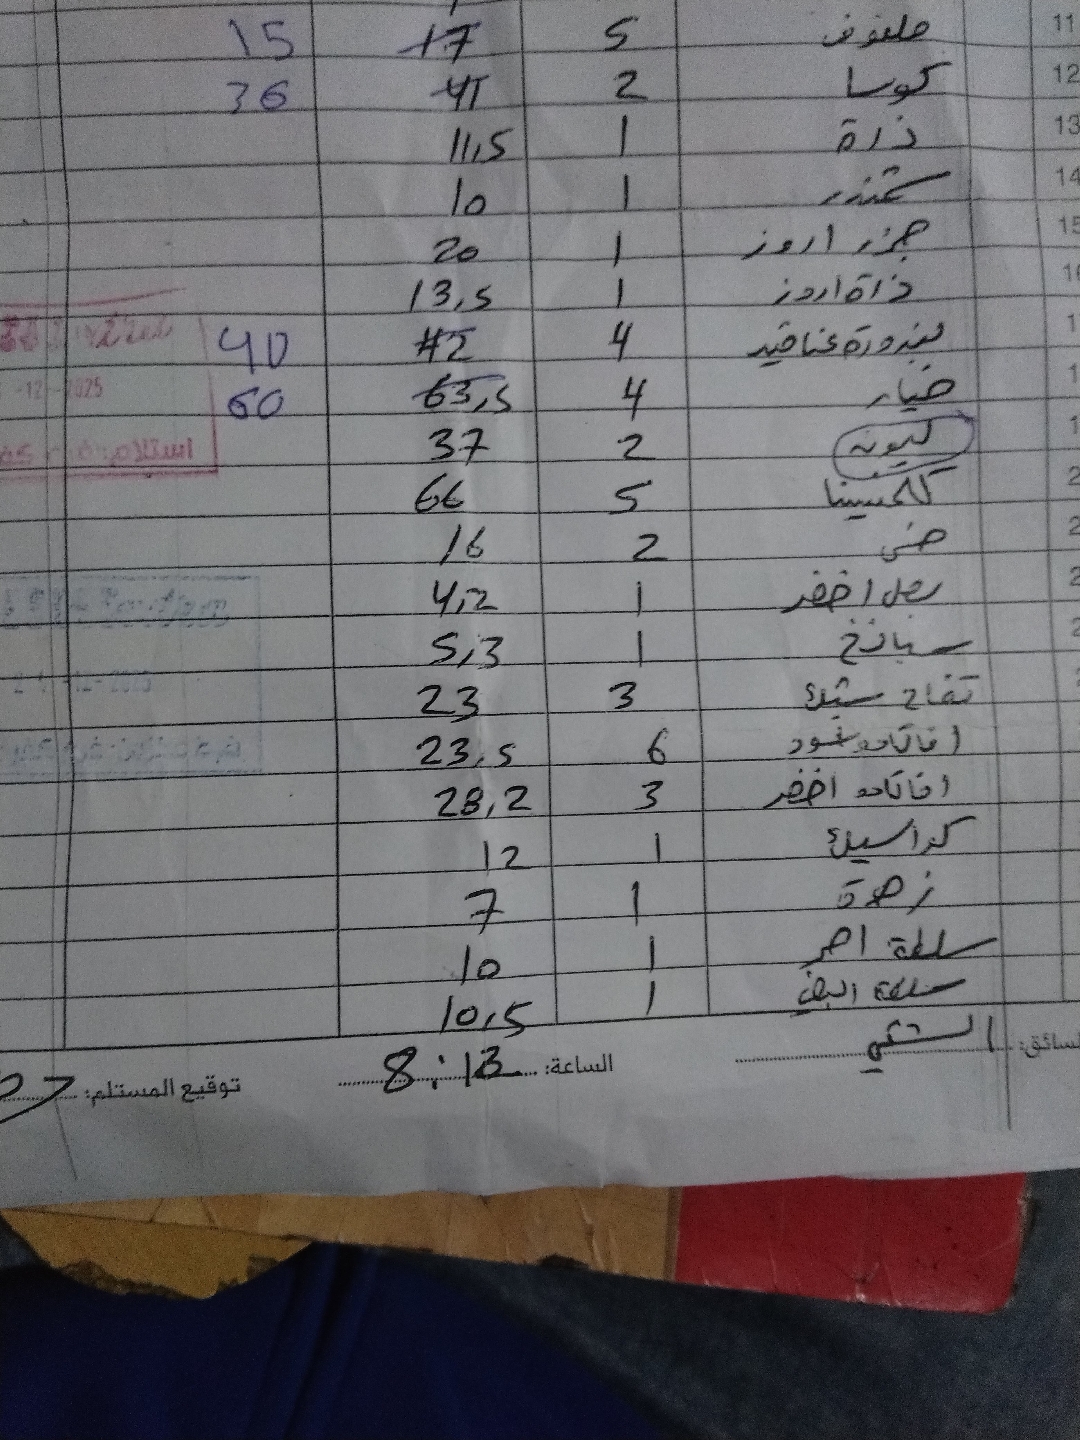 11 ملفوف 5 17 15
12 كوسا 2 41 36
13 ذرة 1 11,5
14 شمندر 1 10
15 جزر اروز 1 20
ذرة اروز 1 13,5
بندورة عناقيد 4 42 40
خيار 4 63,5 60
ليمون 2 37
كلمنتينا 5 66
خس 2 16
بصل اخضر 1 4,2
سبانخ 1 5,3
تفاح ستيك 3 23
افاكادو اسود 6 23,5
افاكادو اخضر 3 28,2
1 12
زهرة 1 7
سلطة احمر 1 10
سلطة ابيض 1 10,5
السائق:
الساعة: 8:13
توقيع المستلم:
-12-2025
استلام